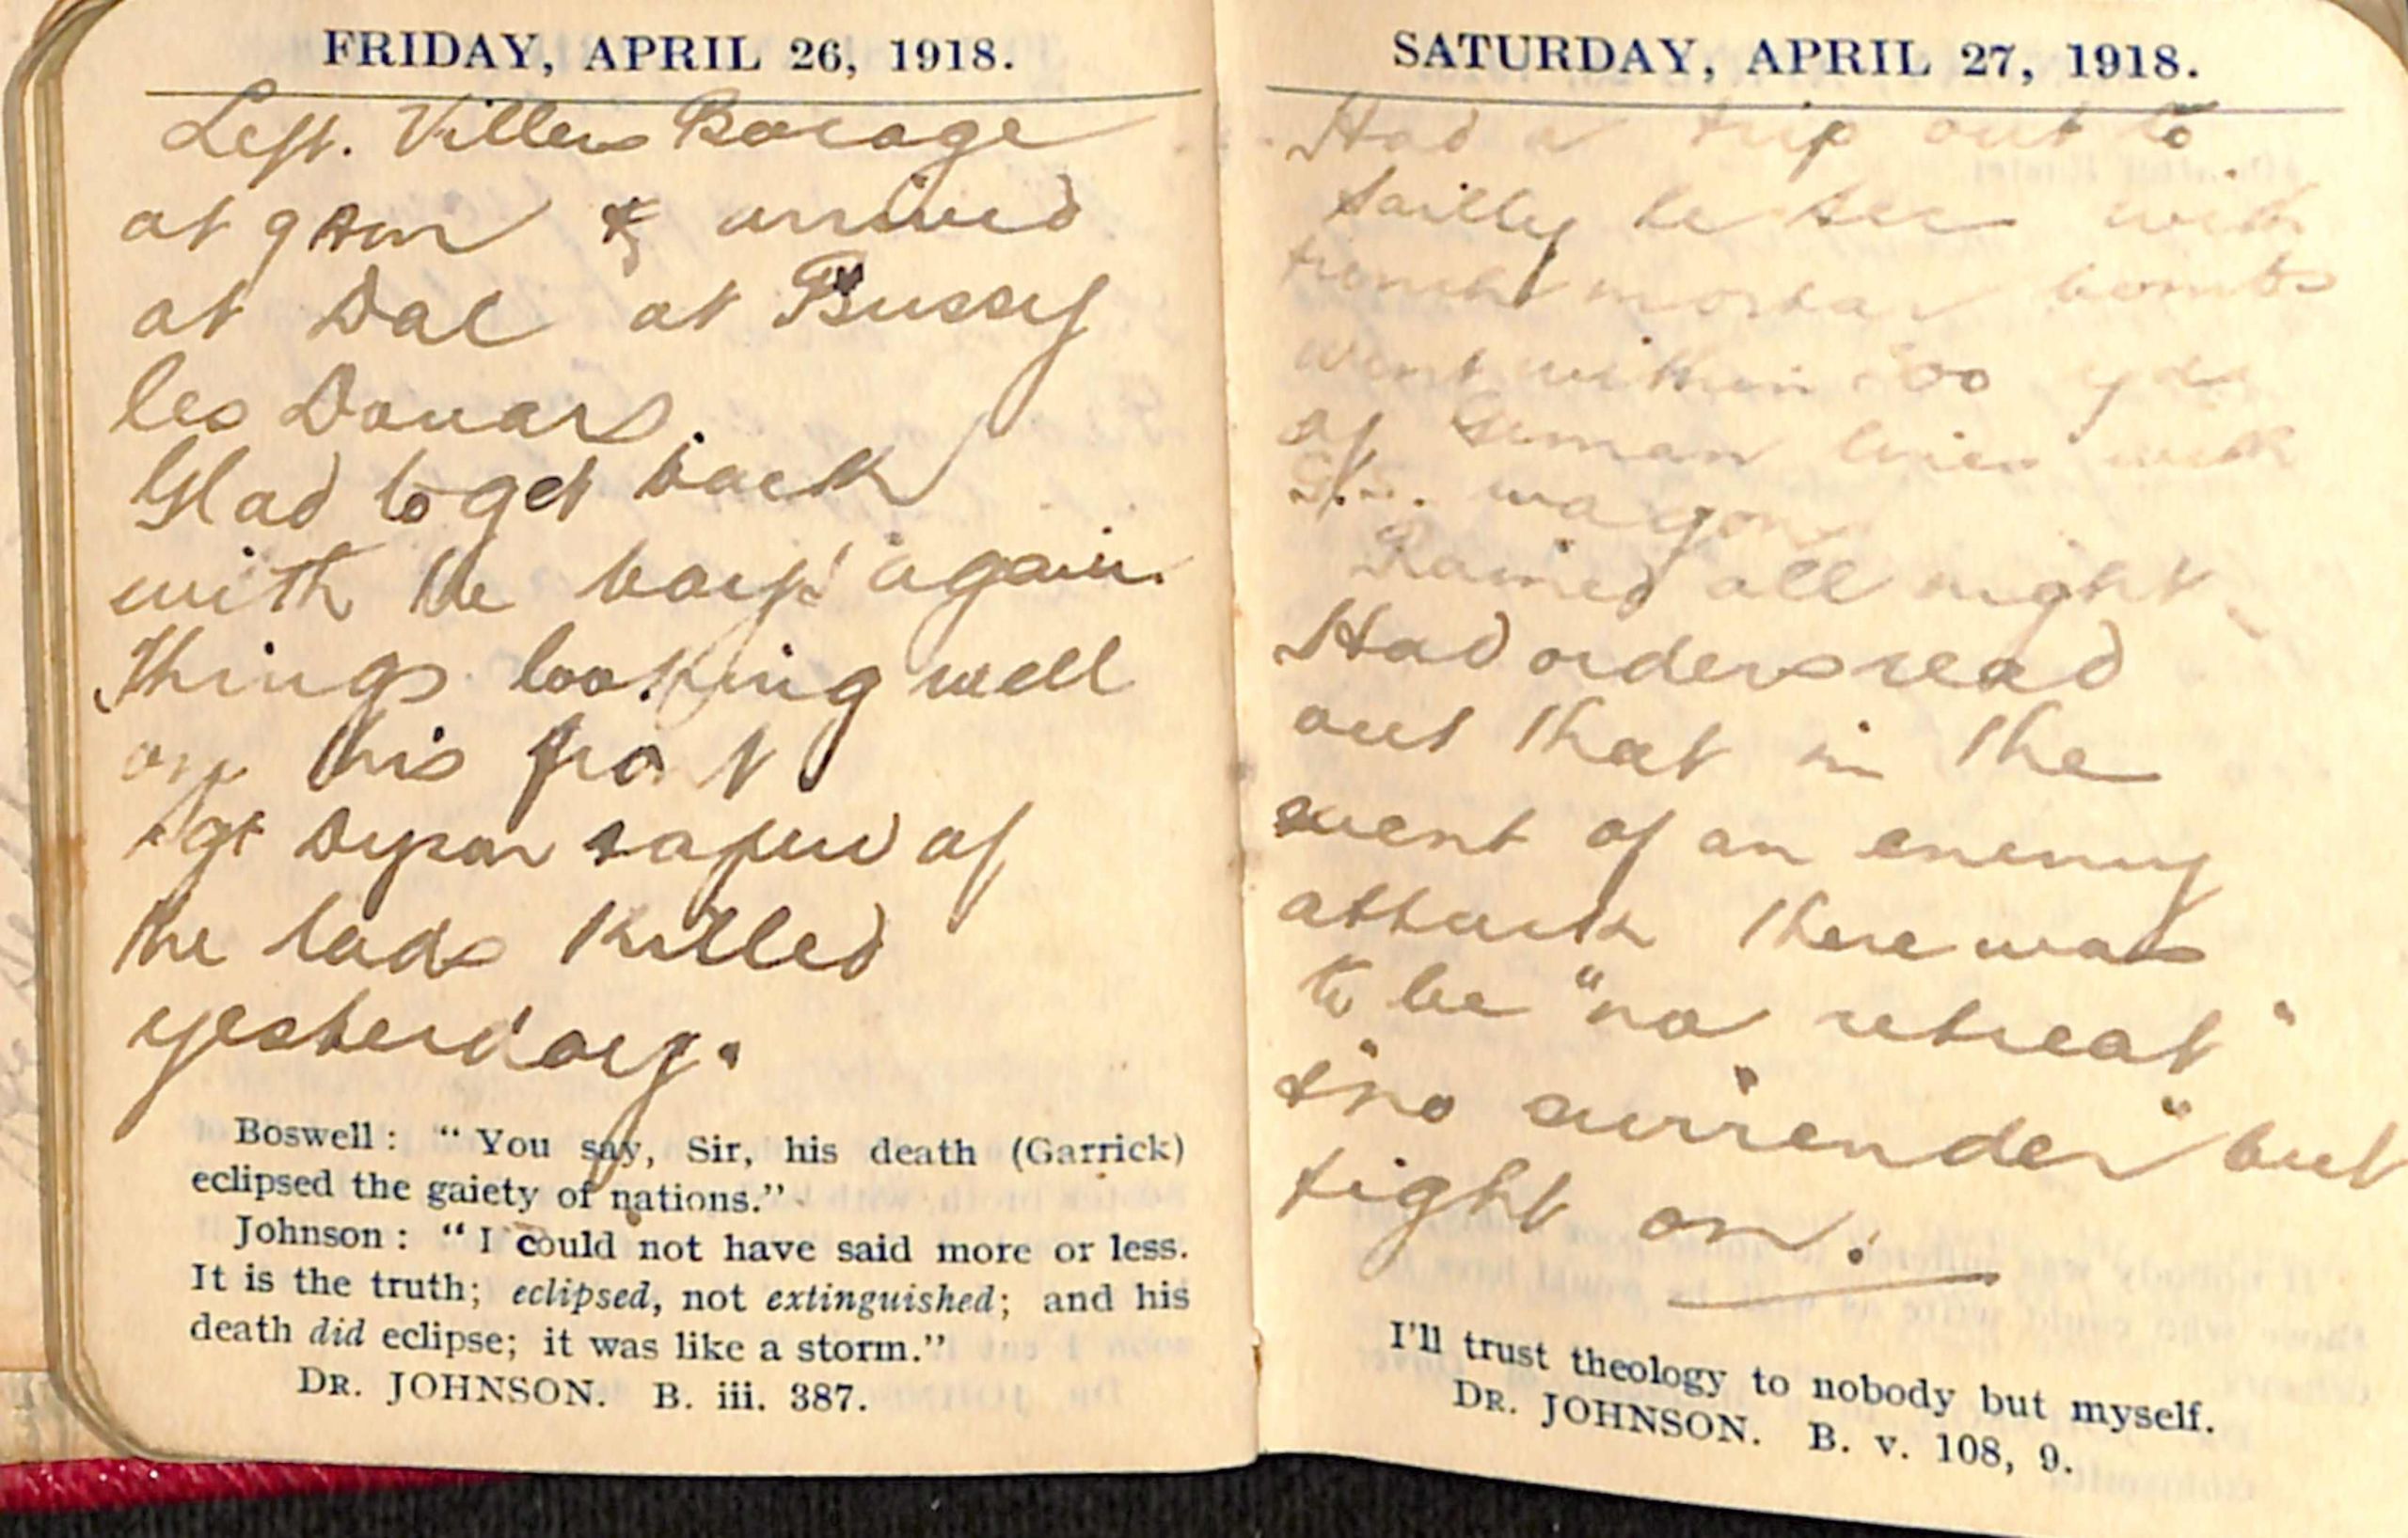 FRIDAY, APRIL 26, 1918.
Left. Villers Bocage
at 9 am & arrived
at Dac at Bussy
les Douars.
Glad to get back
with the boys again.
Things looking well
on this front
Sgt Dyson & a few of
the lads killed
yesterday.
Boswell: "You say, Sir, his death (Garrick)
eclipsed the gaiety of nations."
Johnson: "I could not have said more or less.
It is the truth; eclipsed, not extinguished; and his
death did eclipse; it was like a storm."
DR. JOHNSON. B. iii. 387.
SATURDAY, APRIL 27, 1918.
Had a trip out to
Sailly le Sec with
trench mortar bombs
went within 00 yds
of German lines with
G.S. wagon
Rained all night
Had orders read
out that in the
event of an enemy
attack there was
to be "no retreat"
& "no surrender" but
fight on.
I'll trust theology to nobody but myself.
DR. JOHNSON. B. v. 108, 9.